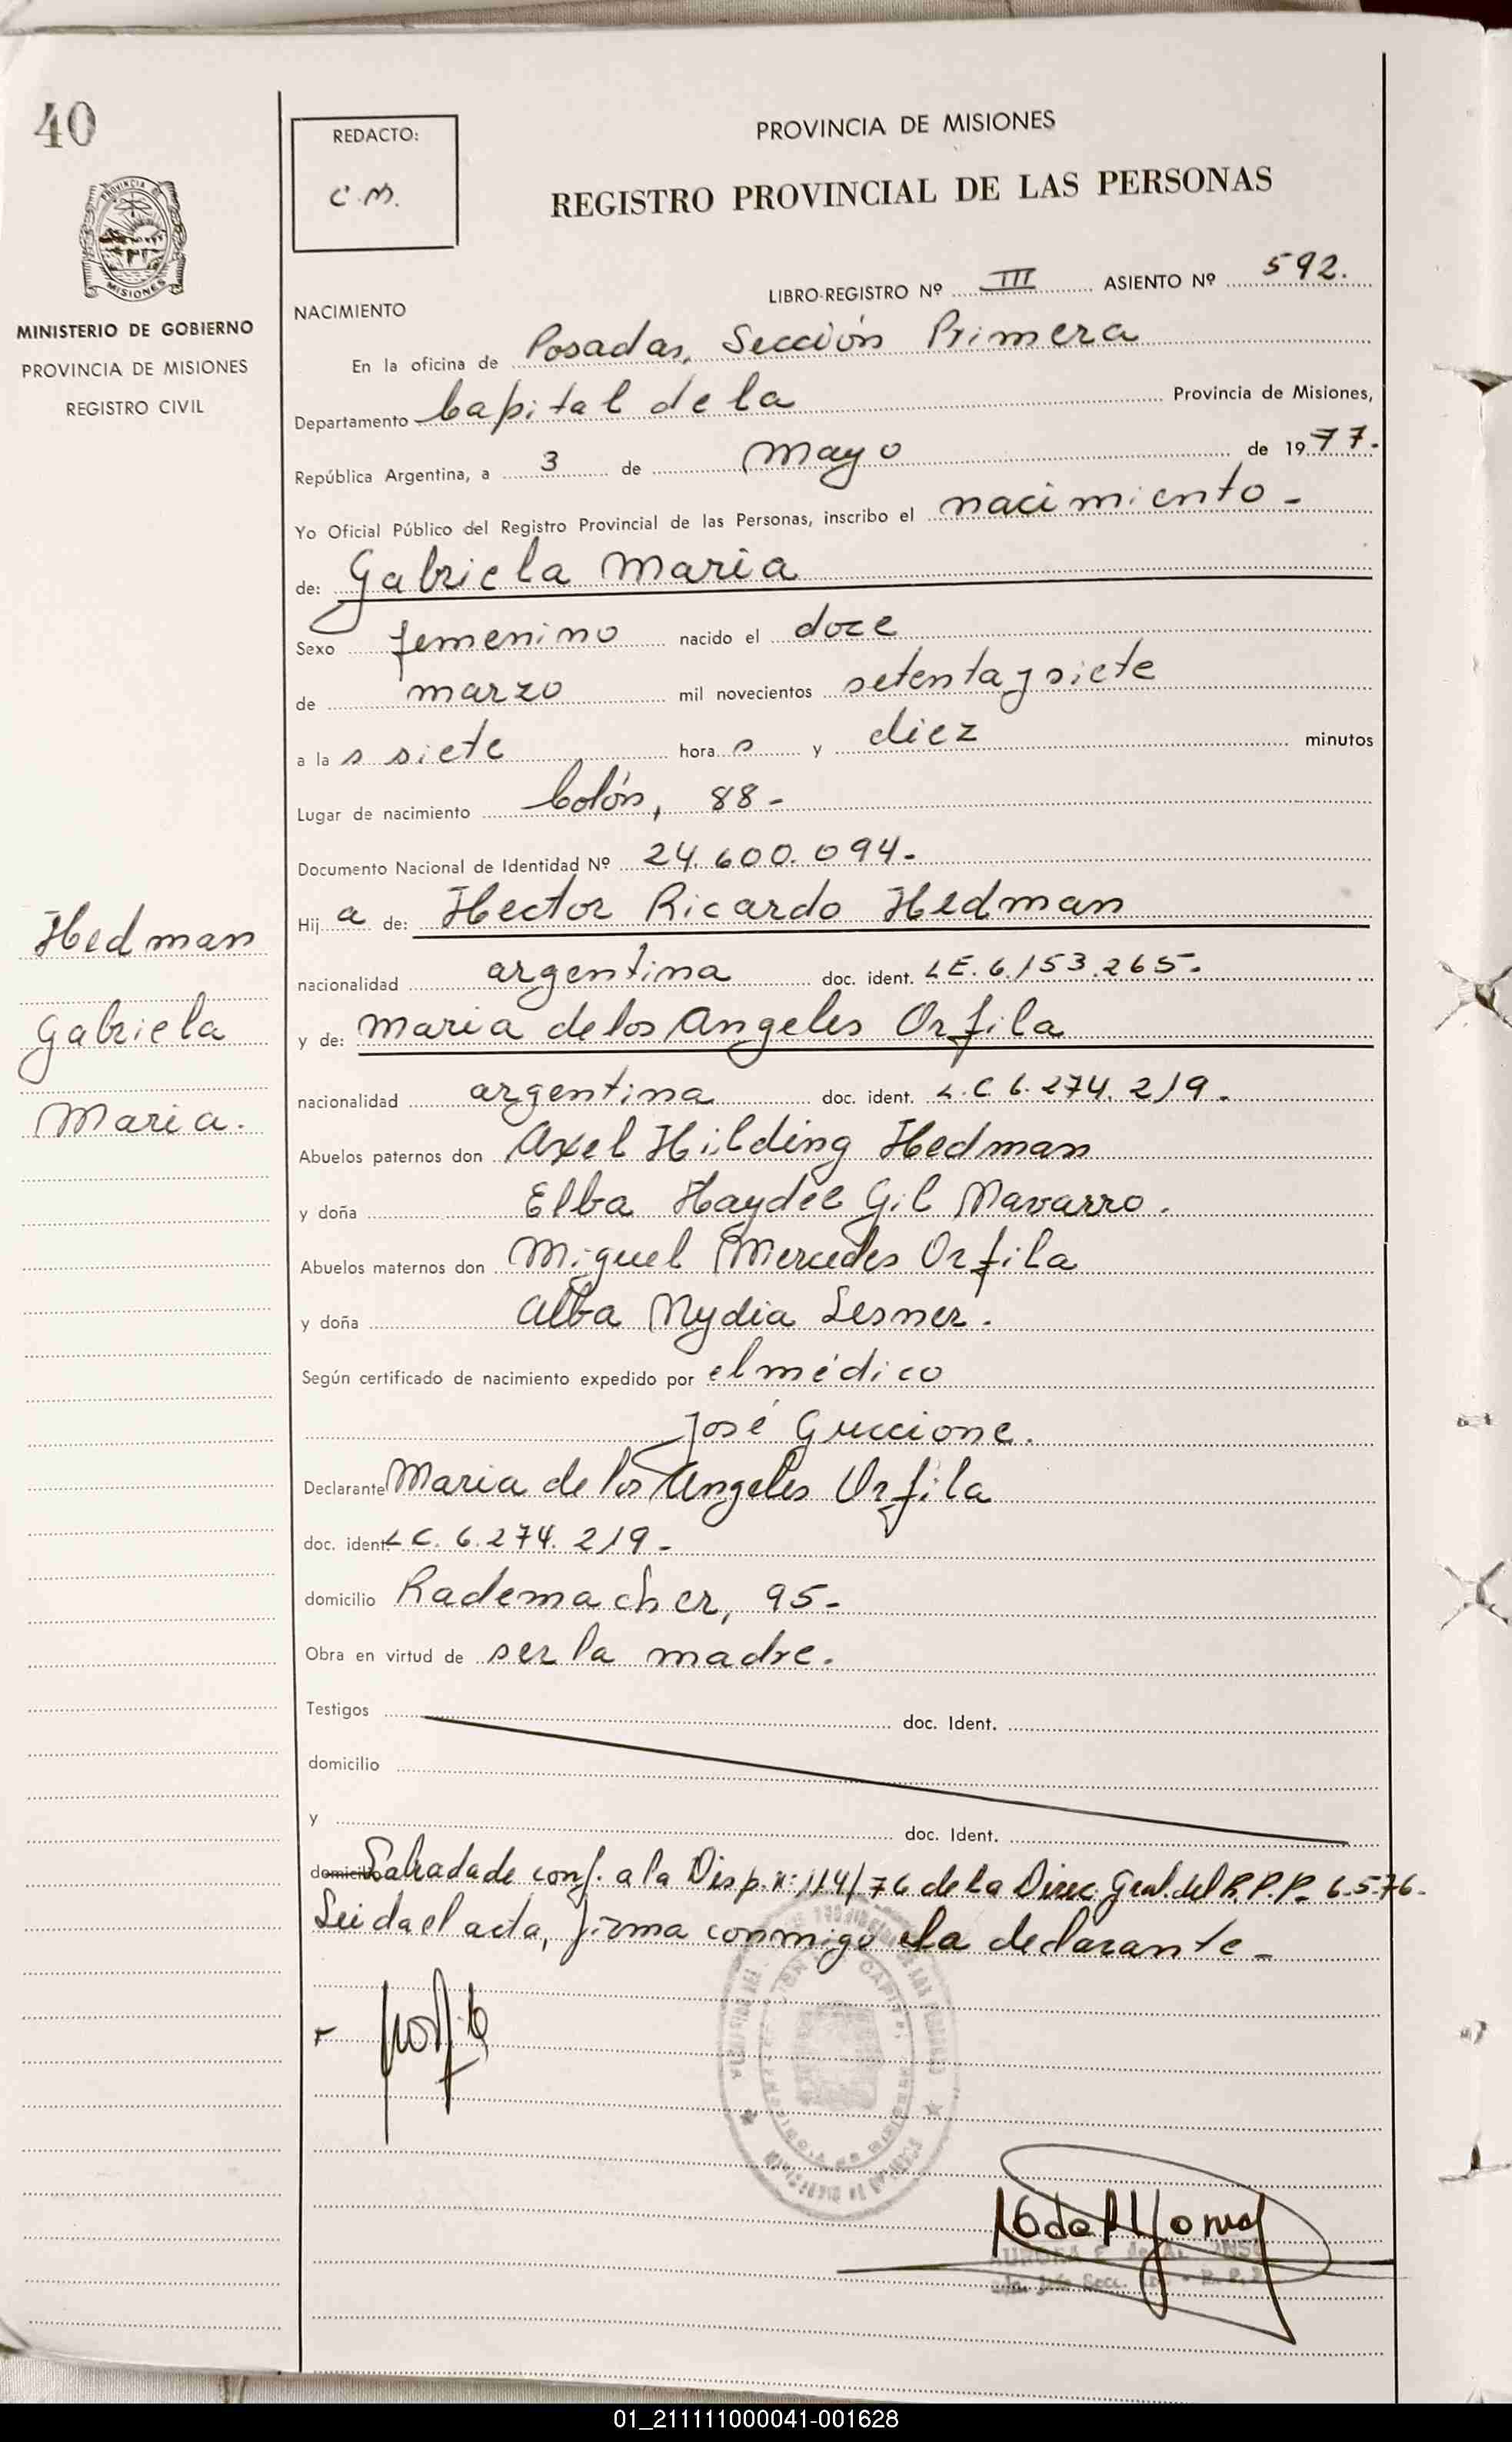 40
REDACTO:
C.M.
PROVINCIA DE MISIONES
REGISTRO PROVINCIAL DE LAS PERSONAS
PROVINCIA DE
MISIONES
MINISTERIO DE GOBIERNO
PROVINCIA DE MISIONES
REGISTRO CIVIL
LIBRO-REGISTRO Nº III ASIENTO Nº 592.
NACIMIENTO
En la oficina de Posadas, Sección Primera
Departamento Capital de la Provincia de Misiones,
República Argentina, a 3 de mayo de 1977.
Yo Oficial Público del Registro Provincial de las Personas, inscribo el nacimiento-
de: Gabriela Maria
Sexo femenino nacido el doce
de marzo mil novecientos setenta y siete
a las siete horas y diez minutos
Lugar de nacimiento Colón, 88-
Documento Nacional de Identidad Nº 24.600.094-
Hija de: Hector Ricardo Hedman
nacionalidad argentina doc. ident. LE. 6.153.265-
y de: Maria de los Angeles Orfila
nacionalidad argentina doc. ident. L.C 6.274.219.
Abuelos paternos don Axel Hilding Hedman
y doña Elba Haydée Gil Navarro.
Abuelos maternos don Miguel Mercedes Orfila
y doña Alba Nydia Lesner.
Según certificado de nacimiento expedido por el médico
José Guccione.
Declarante Maria de los Angeles Orfila
doc. ident. LC. 6.274.219-
domicilio Rademacher, 95-
Obra en virtud de ser la madre.
Testigos doc. Ident.
domicilio
y doc. Ident.
domicilio de conf. a la Disp. n: 114/76 de la Direc. Gral. del R.P.P. 6.5.76.
Leida el acta, firma conmigo la declarante-
Hedman
Gabriela
Maria.
AURORA E. de
01_211111000041-001628